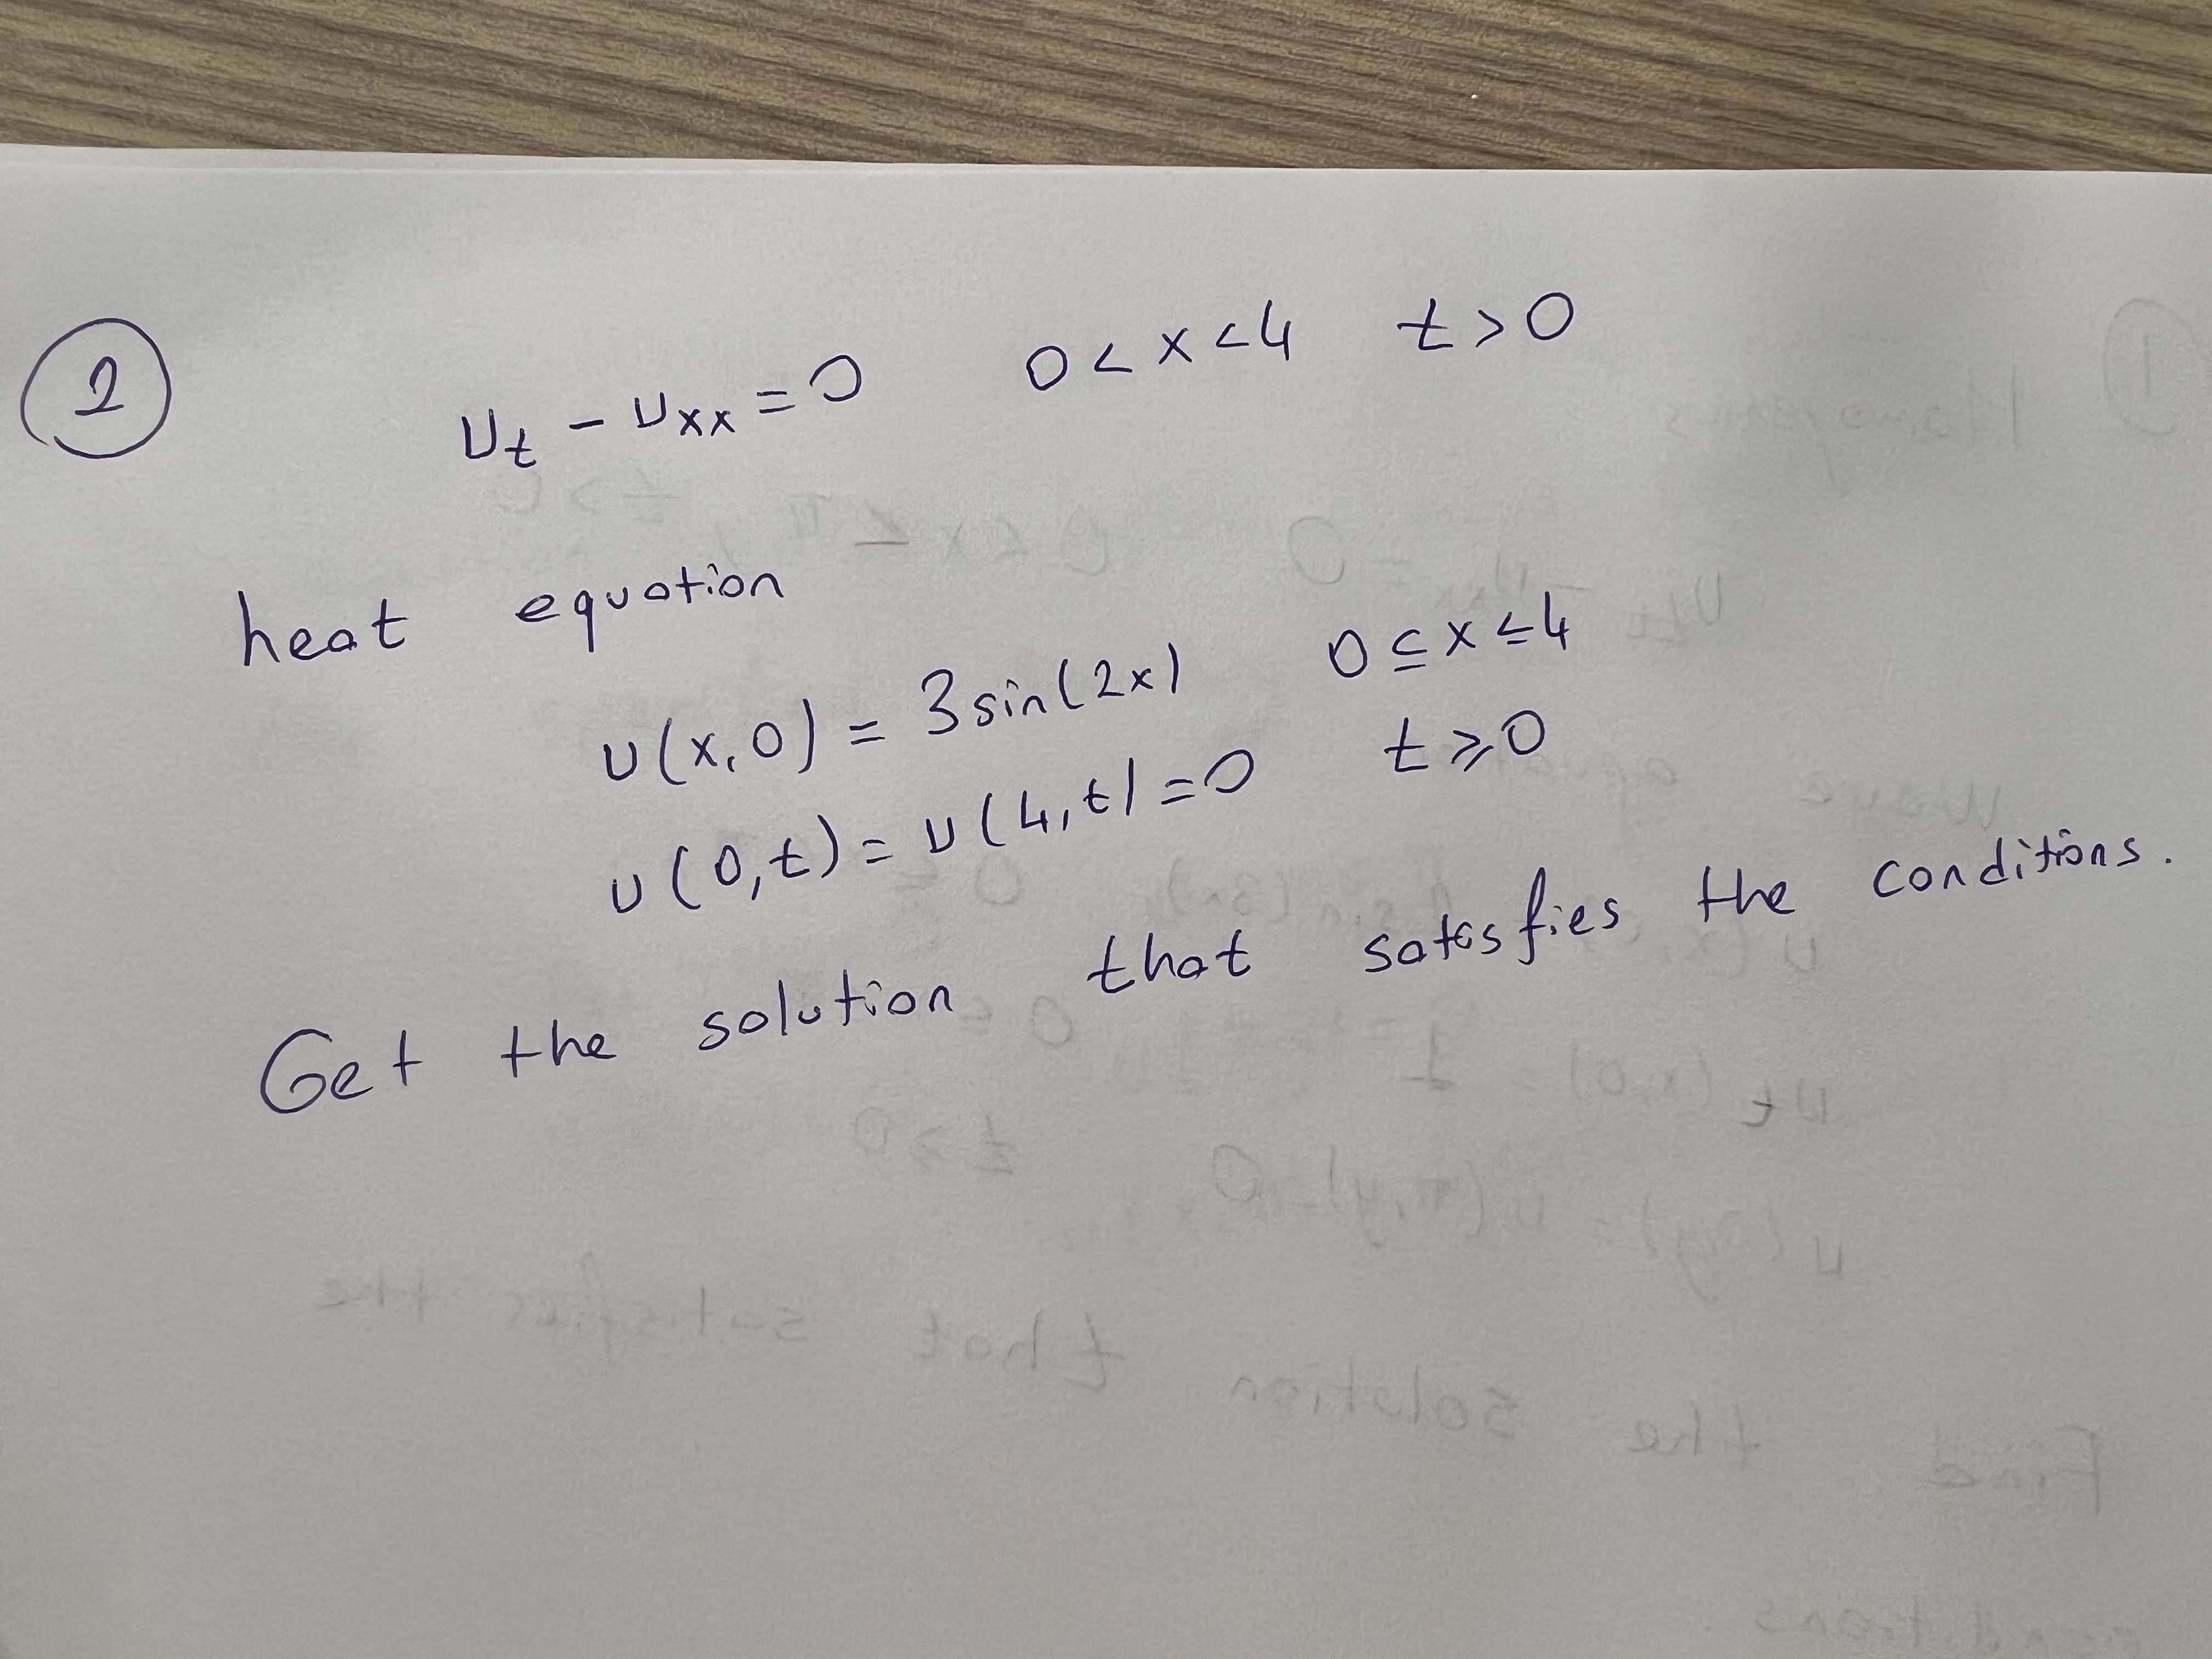 2
U_t - U_xx = 0   0 < x < 4   t > 0
heat equation
u(x,0) = 3sin(2x)   0 ≤ x ≤ 4
u(0,t) = u(4,t) = 0   t ≥ 0
Get the solution that satisfies the conditions.